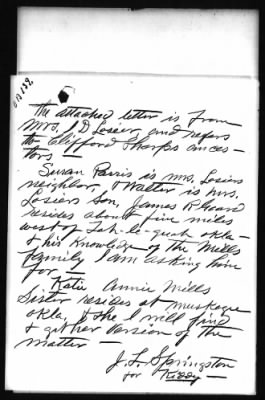 The attached letter is from
Mrs. J D Losier and refers
to Clifford Sharps ances-
tors. —
Susan Parris is Mrs. Losiers
neighbor, & Walter is Mrs.
Losiers son, James R Geard
resides about five miles
west of Tah-le-quah Okla -
& his knowledge of the Mells
family I am asking him
for. —
Katie Annie Mills
Sister resides at Muskogee
Okla. & she I will find
& get her version of the
matter —
J. L. Springston
for Kiddy —